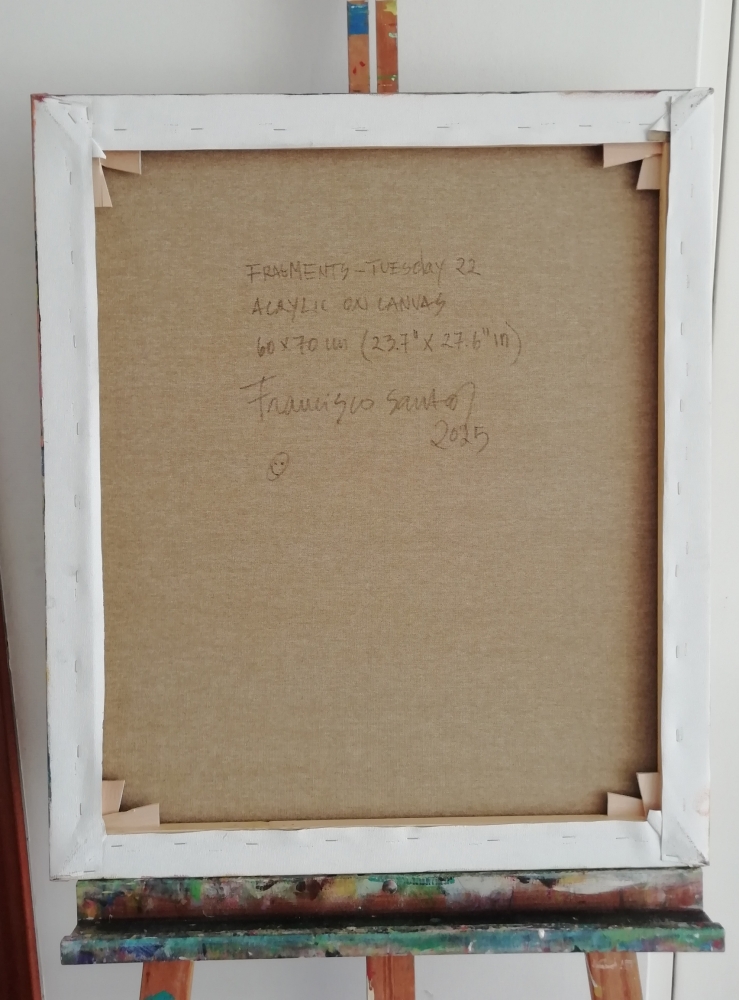 FRAGMENTS - TUESday 22
ACRYLIC ON CANVAS
60 x 70 cm (23.7" X 27.6" in)
Francisco Santos
2025